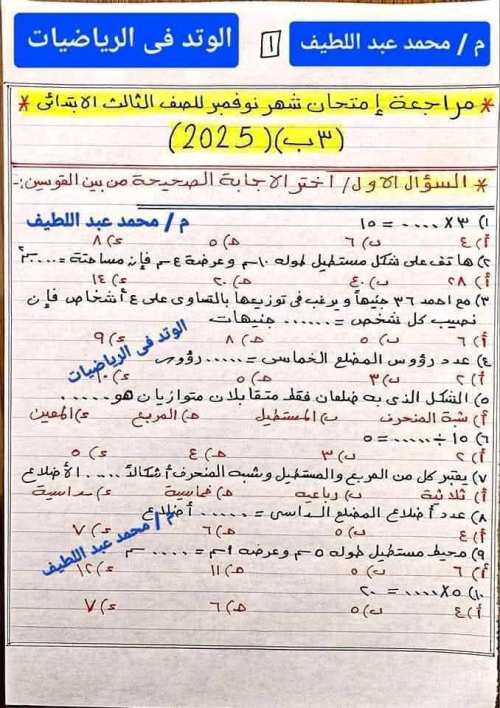 م / محمد عبد اللطيف
١
الوتد فى الرياضيات
* مراجعة إمتحان شهر نوفمبر للصف الثالث الابتدائى *
(٣ب)(2025)
* السؤال الاول / اختر الاجابة الصحيحة من بين القوسين:-
م / محمد عبد اللطيف
١) ٣ × ..... = ١٥
أ) ٤ ب) ٦ حـ) ٥ ء) ٨
٢) هاتف على شكل مستطيل طوله ١٠سم وعرضة ٤سم فإن مساحتة = ..... سم٢
أ) ٢٨ ب) ٤٠ حـ) ٢٠ ء) ١٤
٣) مع احمد ٣٦ جنيهاً ويرغب فى توزيعها بالتساوى على ٤ أشخاص فإن
نصيب كل شخص = ...... جنيهات
أ) ٦ ب) ٥ حـ) ٨ ء) ٩
الوتد فى الرياضيات
٤) عدد رؤوس المضلع الخماسى = ...... رؤوس
أ) ٢ ب) ٣ حـ) ٥ ء) ١٠
٥) الشكل الذى به ضلعان فقط متقابلان متوازيان هو ......
أ) شبة المنحرف ب) المستطيل حـ) المربع ء) المعين
٦) ١٥ ÷ ...... = ٥
أ) ٢ ب) ٣ حـ) ٤ ء) ٥
٧) يعتبر كل من المربع والمستطيل وشبه المنحرف أشكالاً ..... الأضلاع
أ) ثلاثية ب) رباعيه حـ) خماسية ء) سداسية
٨) عدد أضلاع المضلع السداسى = ...... أضلاع
أ) ٤ ب) ٥ حـ) ٦ ء) ٧
م / محمد عبد اللطيف
٩) محيط مستطيل طوله ٥ سم وعرضه ١سم = ..... سم
أ) ٦ ب) ٥ حـ) ١١ ء) ١٢
١٠) ٥ × ..... = ٢٠
أ) ٤ ب) ٥ حـ) ٦ ء) ٧